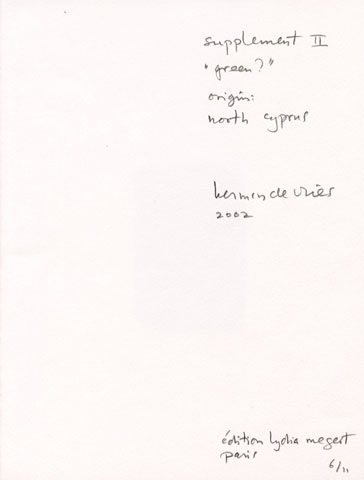 supplement II
"green?"
origin:
north cyprus
herman de vries
2002
édition lydia megert
paris
6/11